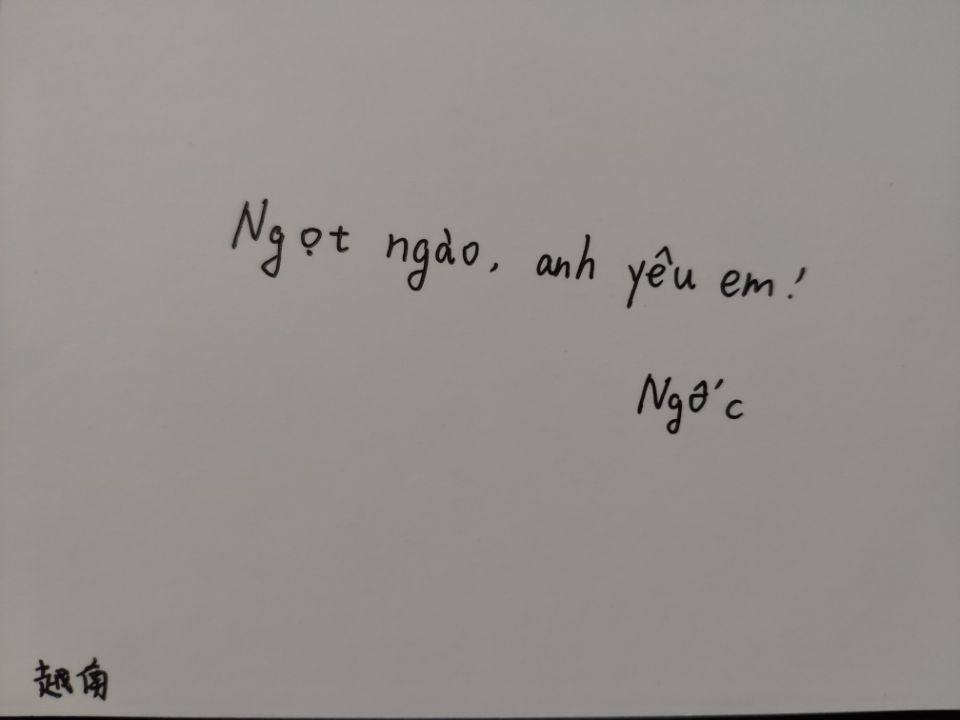 Ngọt ngào, anh yêu em!
Ngốc
越南